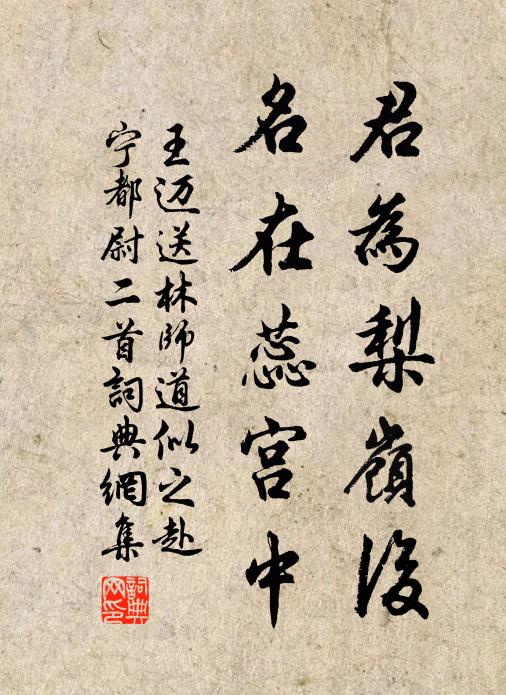 君為梨嶺後
名在蕊宮中
王迈送林師道似之赴
宁都尉二首詞典網集
詞典网印